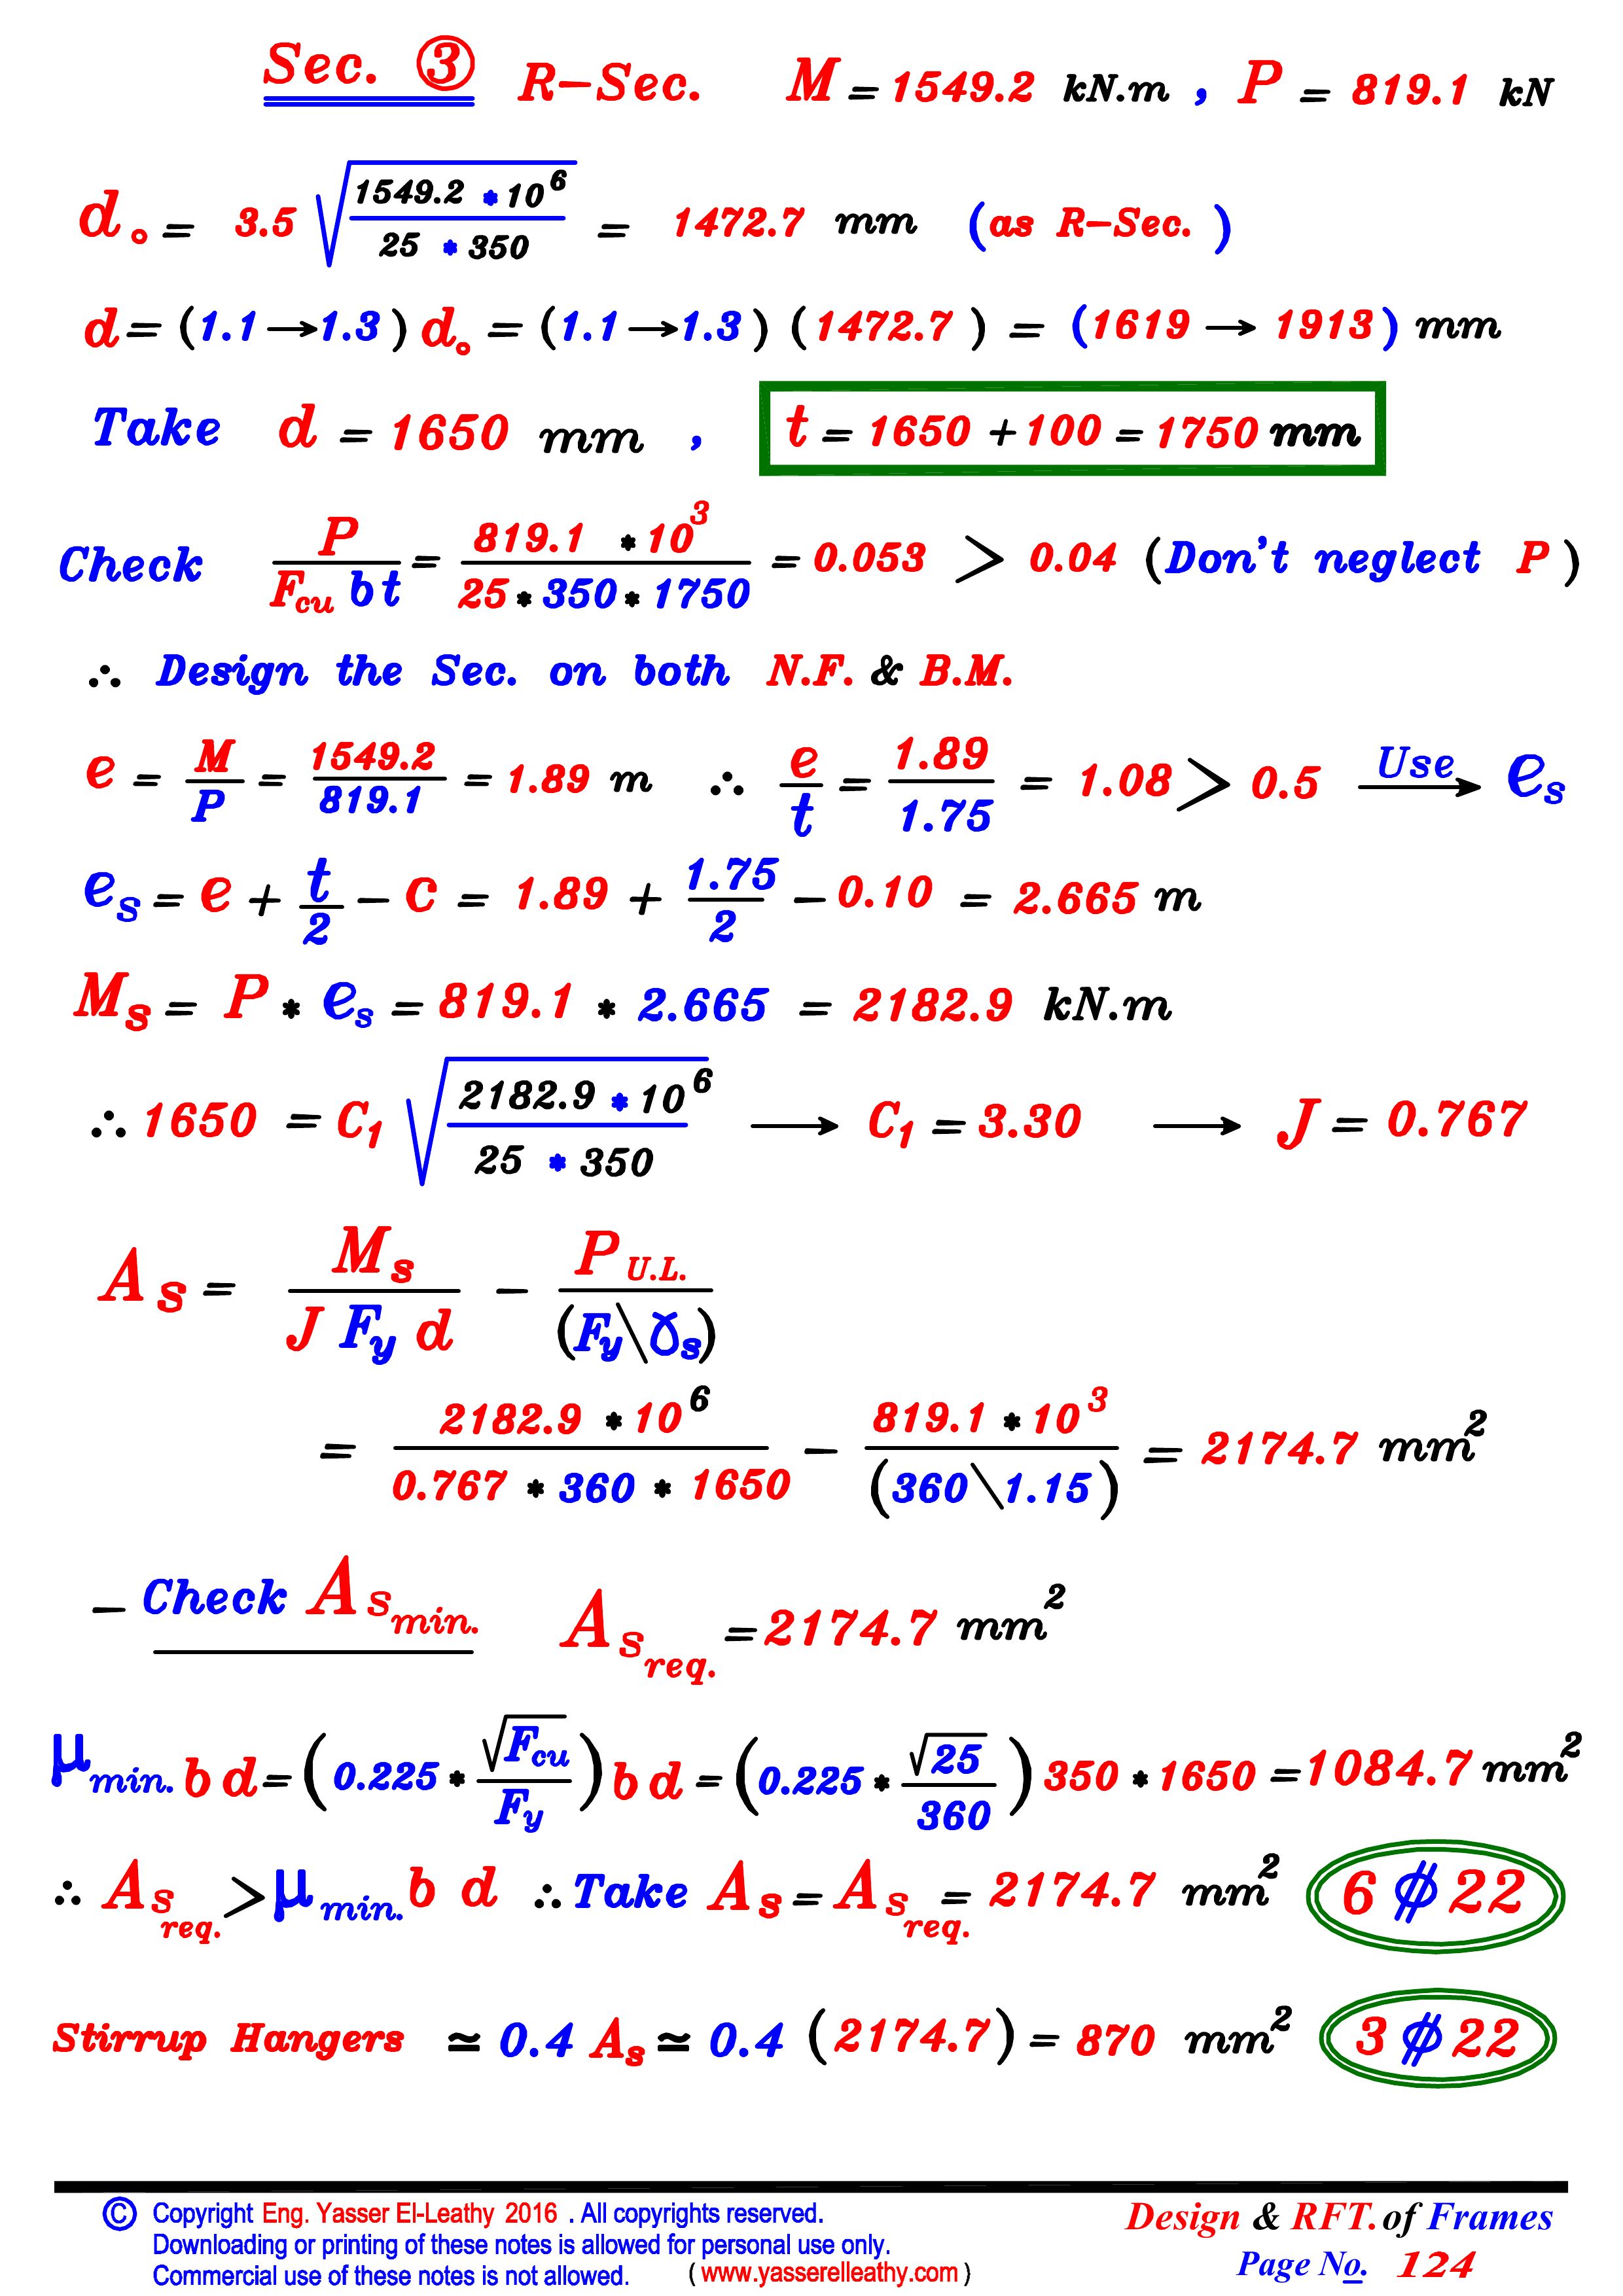 Sec. ③ R-Sec. M = 1549.2 kN.m , P = 819.1 kN
d₀ = 3.5 √(1549.2 * 10⁶ / 25 * 350) = 1472.7 mm (as R-Sec.)
d = (1.1 → 1.3) d₀ = (1.1 → 1.3) (1472.7) = (1619 → 1913) mm
Take d = 1650 mm , t = 1650 + 100 = 1750 mm
Check P / F_cu b t = 819.1 * 10³ / 25 * 350 * 1750 = 0.053 > 0.04 (Don't neglect P)
∴ Design the Sec. on both N.F. & B.M.
e = M / P = 1549.2 / 819.1 = 1.89 m ∴ e / t = 1.89 / 1.75 = 1.08 > 0.5 Use → e_s
e_s = e + t / 2 - c = 1.89 + 1.75 / 2 - 0.10 = 2.665 m
M_s = P * e_s = 819.1 * 2.665 = 2182.9 kN.m
∴ 1650 = C₁ √(2182.9 * 10⁶ / 25 * 350) → C₁ = 3.30 → J = 0.767
A_s = M_s / J F_y d - P_U.L. / (F_y \ ɣ_s)
= 2182.9 * 10⁶ / 0.767 * 360 * 1650 - 819.1 * 10³ / (360 \ 1.15) = 2174.7 mm²
- Check A_s min. A_s req. = 2174.7 mm²
μ_min. b d = (0.225 * √F_cu / F_y) b d = (0.225 * √25 / 360) 350 * 1650 = 1084.7 mm²
∴ A_s req. > μ_min. b d ∴ Take A_s = A_s req. = 2174.7 mm² 6 ⌀ 22
Stirrup Hangers ≃ 0.4 A_s ≃ 0.4 (2174.7) = 870 mm² 3 ⌀ 22
© Copyright Eng. Yasser El-Leathy 2016 . All copyrights reserved.
Downloading or printing of these notes is allowed for personal use only.
Commercial use of these notes is not allowed. ( www.yasserelleathy.com )
Design & RFT. of Frames
Page No. 124